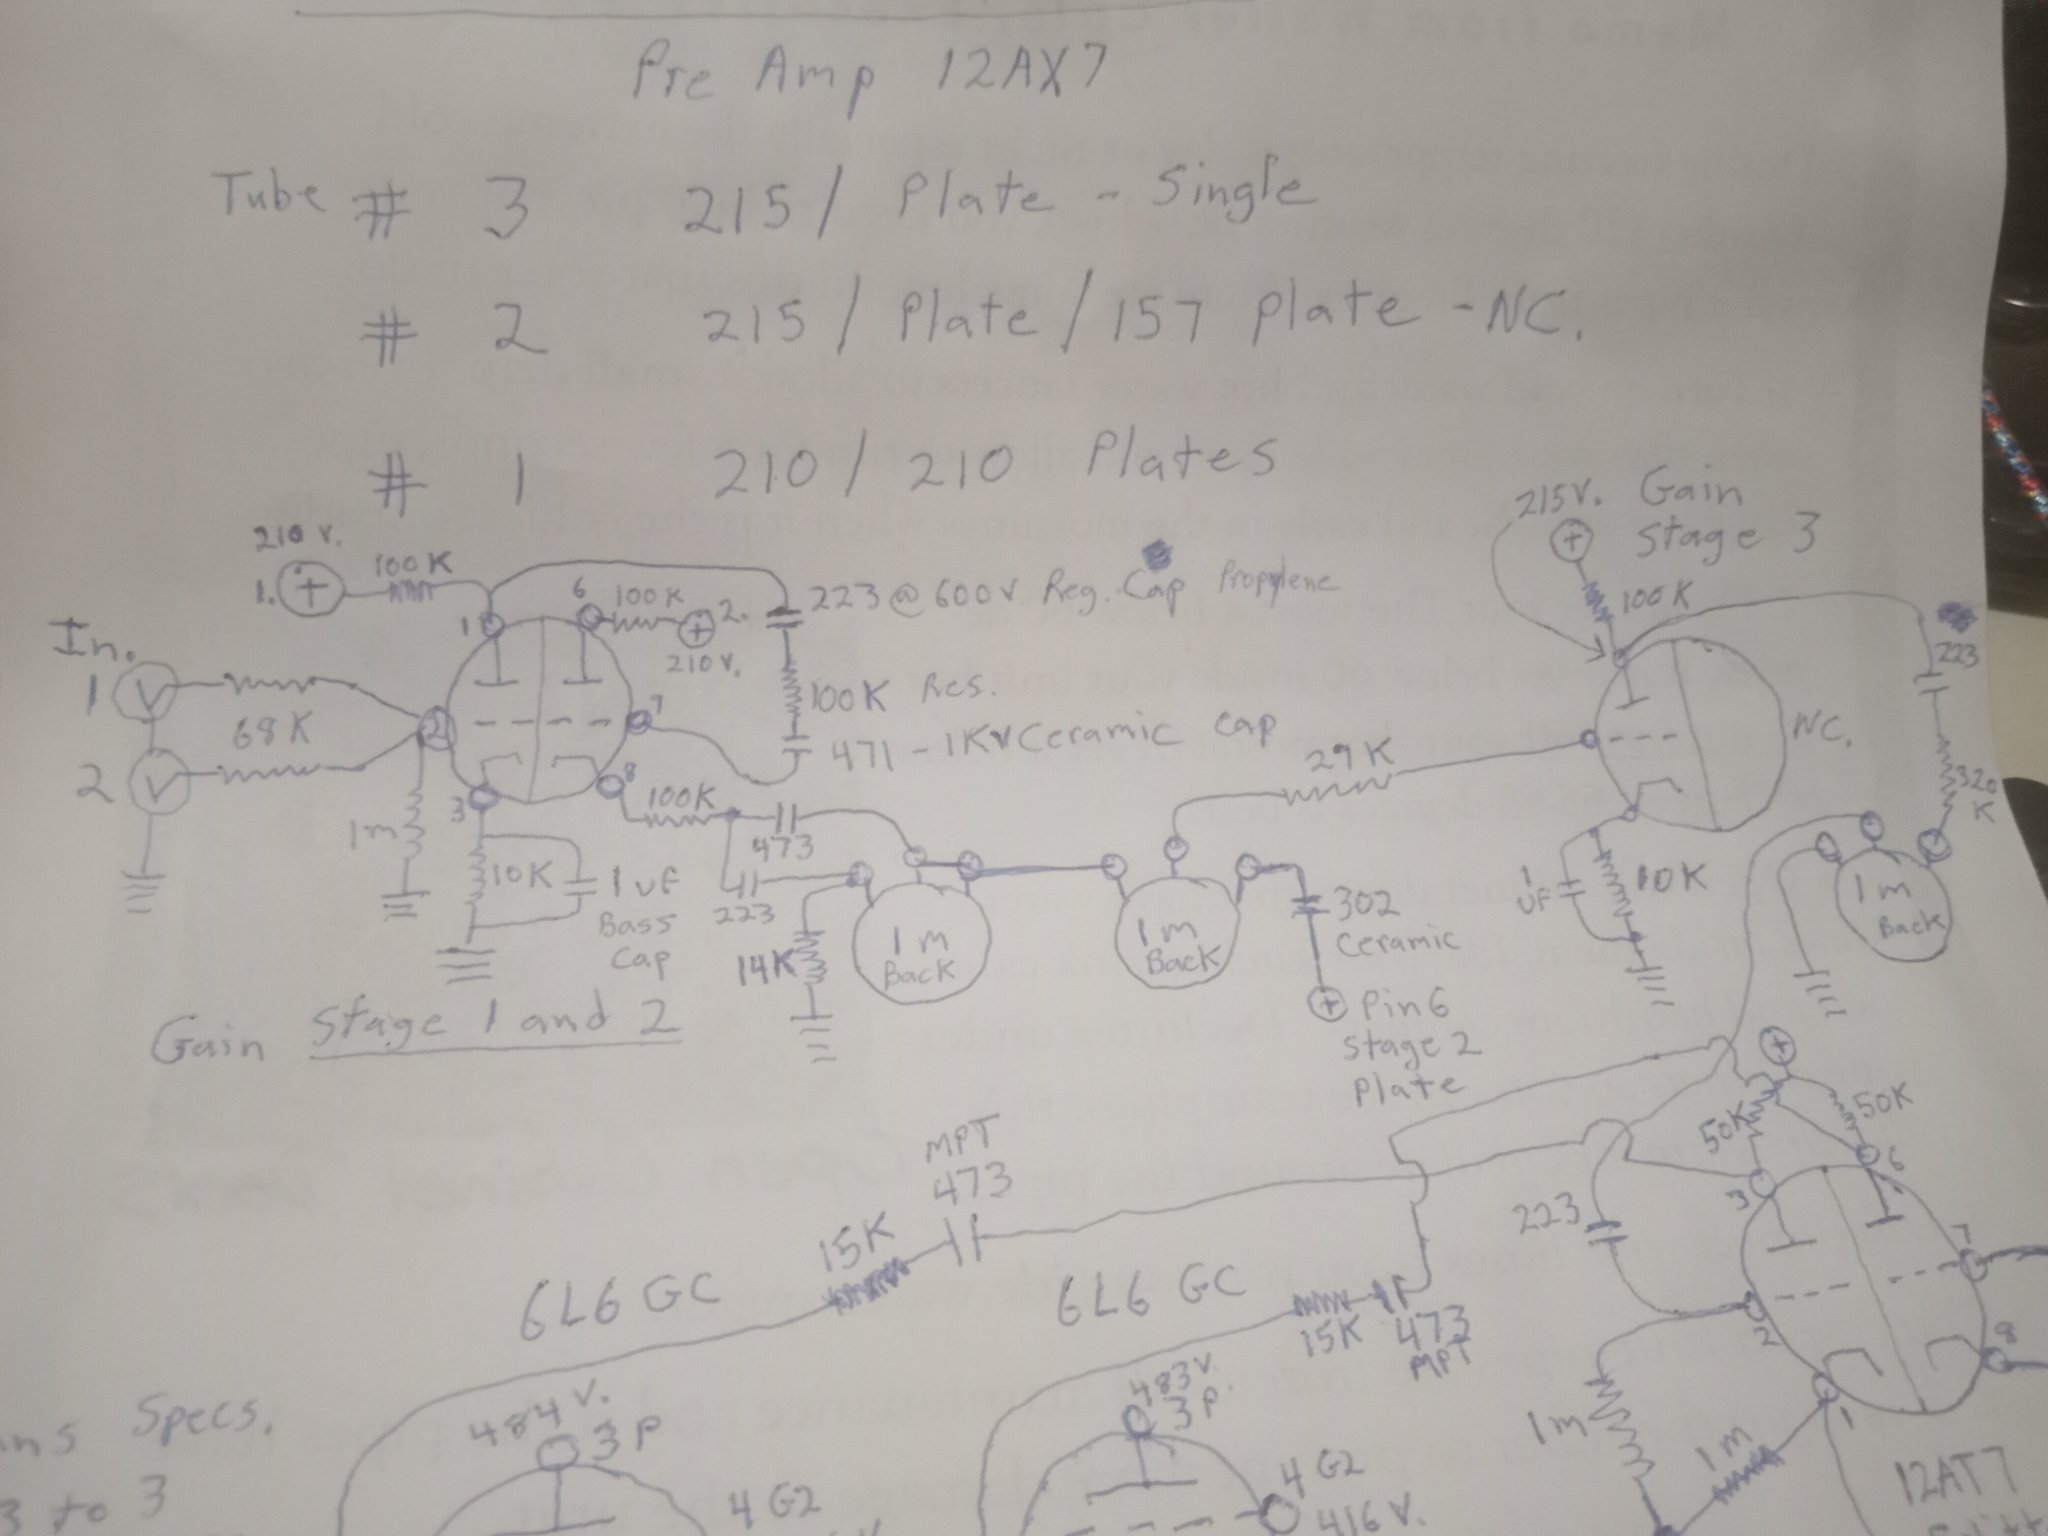 Pre Amp 12AX7
Tube # 3 215/ Plate - Single
# 2 215/ Plate/157 plate -NC.
# 1 210/210 Plates
215V. Gain
stage 3
210 V.
1. + 100K
6 100K + 2.
210 V.
223@600V Reg. Cap Propylene
100K Res.
471 - 1KV Ceramic cap
In.
1 V
68K
2 V
1
2
7
3
8
1m
10K
1 uF
Bass
Cap
100K
473
223
14K
1m
Back
1m
Back
302
Ceramic
+ Pin 6
stage 2
plate
29K
+
100K
223
320
K
NC.
1
uF
10K
1m
Back
Gain Stage 1 and 2
+
50K
50K
3
6
7
2
8
1
223
1m
1m
12AT7
MPT
473
15K
6L6 GC
6L6 GC
15K
473
MPT
484 V.
3 P
4 G2
483V.
3 P.
4 G2
416 V.
Specs.
3 to 3